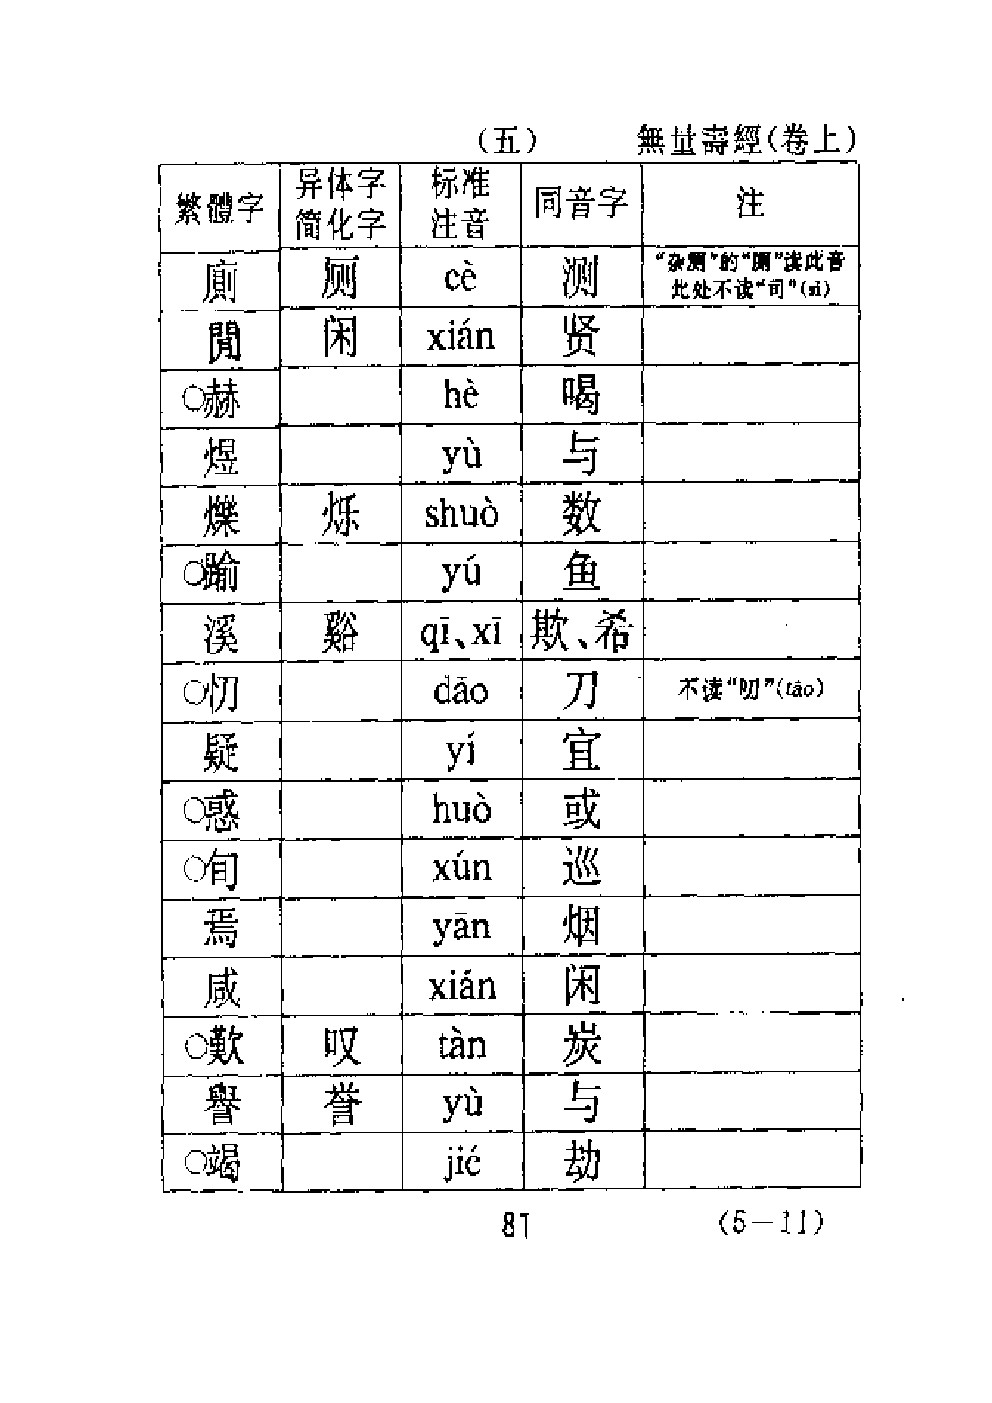 (五) 無量壽經(卷上)
繁體字 异体字简化字 标准注音 同音字 注
廁 厕 cè 测 “杂厕”的“厕”读此音 此处不读“司”(sī)
閒 闲 xián 贤
○赫 hè 喝
煜 yù 与
爍 烁 shuò 数
○踰 yú 鱼
溪 谿 qī、xī 欺、希
○忉 dāo 刀 不读“叨”(tāo)
疑 yí 宜
○惑 huò 或
○旬 xún 巡
焉 yān 烟
咸 xián 闲
○歎 叹 tàn 炭
譽 誉 yù 与
○竭 jié 劫
81 (5－11)